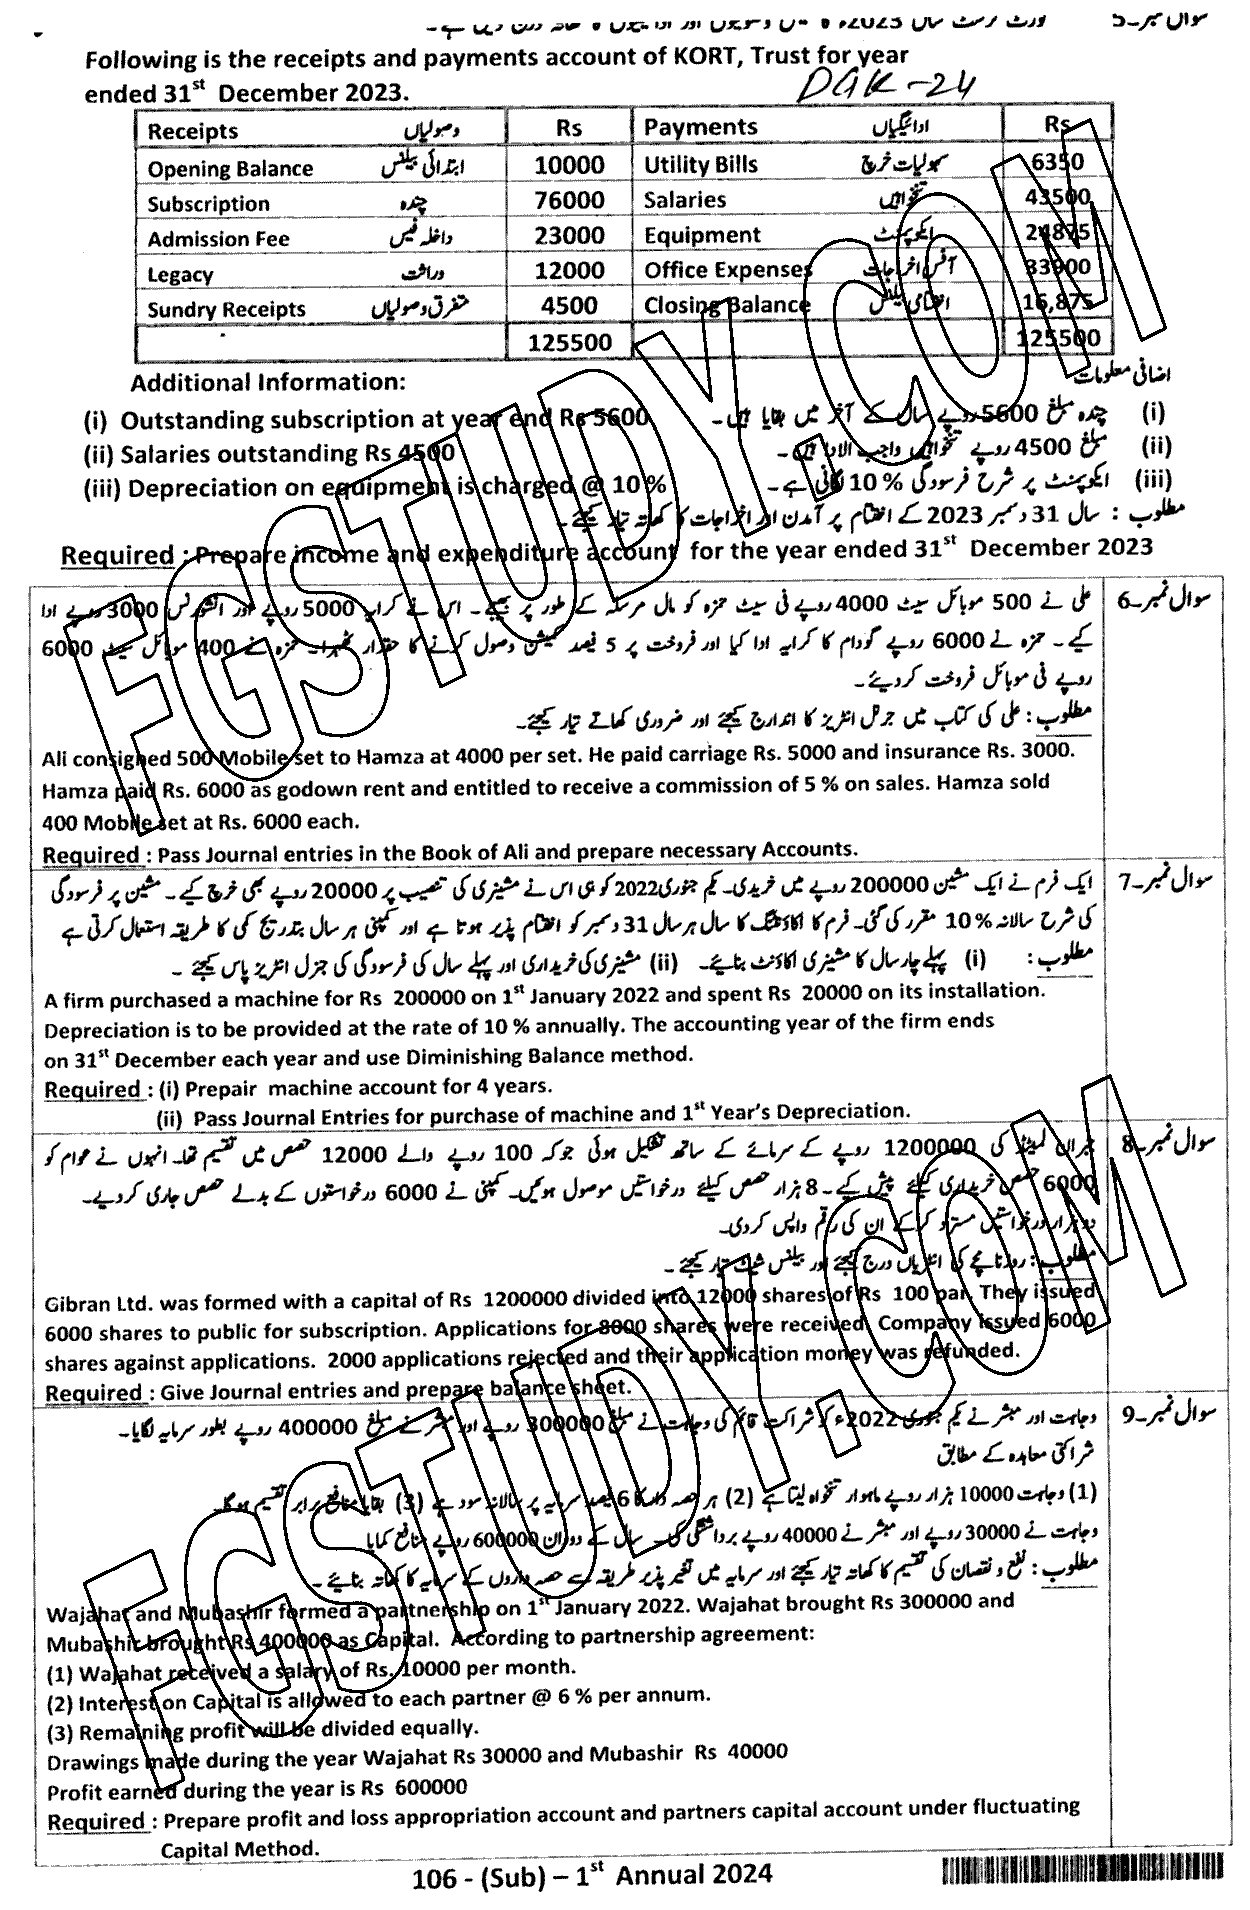 سوال نمبر۔5
Following is the receipts and payments account of KORT, Trust for year
ended 31st December 2023.
DGK-24
Receipts وصولیاں Rs Payments ادائیگیاں Rs
Opening Balance ابتدائی بیلنس 10000 Utility Bills سہولیات خرچ 6350
Subscription چندہ 76000 Salaries تنخواہیں 43500
Admission Fee داخلہ فیس 23000 Equipment ایکوپمنٹ 24875
Legacy وراثت 12000 Office Expenses آفس اخراجات 33900
Sundry Receipts متفرق وصولیاں 4500 Closing Balance اختتامی بیلنس 16,875
125500 125500
Additional Information: اضافی معلومات
(i) Outstanding subscription at year end Rs 5600 (i) چندہ مبلغ 5600 روپے سال کے آخر میں بقایا ہیں۔
(ii) Salaries outstanding Rs 4500 (ii) مبلغ 4500 روپے تنخواہیں واجب الادا ہیں۔
(iii) Depreciation on equipment is charged @ 10 % (iii) ایکوپمنٹ پر شرح فرسودگی % 10 لگانی ہے۔
مطلوب : سال 31 دسمبر 2023 کے اختتام پر آمدن اور اخراجات کا کھاتہ تیار کیجئے۔
Required : Prepare income and expenditure account for the year ended 31st December 2023
سوال نمبر۔6
علی نے 500 موبائل سیٹ 4000 روپے فی سیٹ حمزہ کو مال مرسلہ کے طور پر بھیجے۔ اس نے کرایہ 5000 روپے اور انشورنس 3000 روپے ادا
کیے۔ حمزہ نے 6000 روپے گودام کا کرایہ ادا کیا اور فروخت پر 5 فیصد کمیشن وصول کرنے کا حقدار ٹھہرا۔ حمزہ نے 400 موبائل سیٹ 6000
روپے فی موبائل فروخت کردیئے۔
مطلوب : علی کی کتاب میں جرنل انٹریز کا اندارج کیجئے اور ضروری کھاتے تیار کیجئے۔
Ali consigned 500 Mobile set to Hamza at 4000 per set. He paid carriage Rs. 5000 and insurance Rs. 3000.
Hamza paid Rs. 6000 as godown rent and entitled to receive a commission of 5 % on sales. Hamza sold
400 Mobile set at Rs. 6000 each.
Required : Pass Journal entries in the Book of Ali and prepare necessary Accounts.
سوال نمبر۔7
ایک فرم نے ایک مشین 200000 روپے میں خریدی۔ یکم جنوری 2022 کو ہی اس نے مشینری کی تنصیب پر 20000 روپے بھی خرچ کیے۔ مشین پر فرسودگی
کی شرح سالانہ % 10 مقرر کی گئی۔ فرم کا اکاؤنٹنگ کا سال ہر سال 31 دسمبر کو اختتام پذیر ہوتا ہے اور کمپنی ہر سال بتدریج کمی کا طریقہ استعمال کرتی ہے
مطلوب : (i) پہلے چار سال کا مشینری اکاؤنٹ بنائیے۔ (ii) مشینری کی خریداری اور پہلے سال کی فرسودگی کی جنرل انٹریز پاس کیجئے ۔
A firm purchased a machine for Rs 200000 on 1st January 2022 and spent Rs 20000 on its installation.
Depreciation is to be provided at the rate of 10 % annually. The accounting year of the firm ends
on 31st December each year and use Diminishing Balance method.
Required : (i) Prepair machine account for 4 years.
(ii) Pass Journal Entries for purchase of machine and 1st Year's Depreciation.
سوال نمبر۔8
جبران لمیٹڈ کی 1200000 روپے کے سرمائے کے ساتھ تشکیل ہوئی جوکہ 100 روپے والے 12000 حصص میں تقسیم تھا۔ انہوں نے عوام کو
6000 حصص خریداری کیلئے پیش کیے۔ 8 ہزار حصص کیلئے درخواستیں موصول ہوئیں۔ کمپنی نے 6000 درخواستوں کے بدلے حصص جاری کردیے۔
دو ہزار درخواستیں مسترد کرکے ان کی رقم واپس کردی۔
مطلوب : روزنامچے کی انٹریاں درج کیجئے اور بیلنس شیٹ تیار کیجئے ۔
Gibran Ltd. was formed with a capital of Rs 1200000 divided into 12000 shares of Rs 100 par. They issued
6000 shares to public for subscription. Applications for 8000 shares were received. Company issued 6000
shares against applications. 2000 applications rejected and their application money was refunded.
Required : Give Journal entries and prepare balance sheet.
سوال نمبر۔9
وجاہت اور مبشر نے یکم جنوری 2022ء کو شراکت قائم کی وجاہت نے مبلغ 300000 روپے اور مبشر نے مبلغ 400000 روپے بطور سرمایہ لگایا۔
شراکتی معاہدہ کے مطابق
(1) وجاہت 10000 ہزار روپے ماہوار تنخواہ لیتا ہے (2) ہر حصہ دار کا 6 فیصد سرمایہ پر سالانہ سود ہے (3) بقایا منافع برابر تقسیم ہوگا۔
وجاہت نے 30000 روپے اور مبشر نے 40000 روپے برداشتگی کی۔ سال کے دوران 600000 روپے منافع کمایا
مطلوب : نفع و نقصان کی تقسیم کا کھاتہ تیار کیجئے اور سرمایہ میں تغیر پذیر طریقہ سے حصہ داروں کے سرمایہ کا کھاتہ بنائیے۔
Wajahat and Mubashir formed a partnership on 1st January 2022. Wajahat brought Rs 300000 and
Mubashir brought Rs 400000 as Capital. According to partnership agreement:
(1) Wajahat received a salary of Rs. 10000 per month.
(2) Interest on Capital is allowed to each partner @ 6 % per annum.
(3) Remaining profit will be divided equally.
Drawings made during the year Wajahat Rs 30000 and Mubashir Rs 40000
Profit earned during the year is Rs 600000
Required : Prepare profit and loss appropriation account and partners capital account under fluctuating
Capital Method.
106 - (Sub) – 1st Annual 2024
FGSTUDY.COM
FGSTUDY.COM